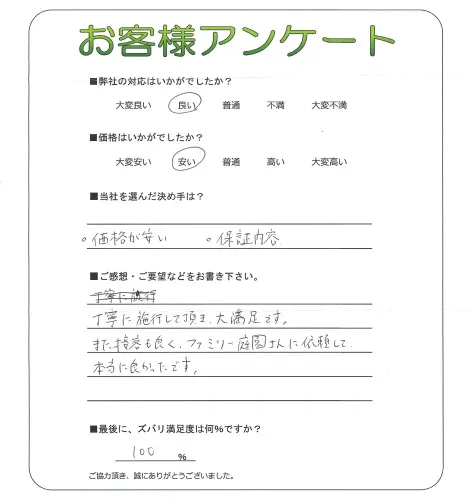 お客様アンケート
■弊社の対応はいかがでしたか？
大変良い 良い 普通 不満 大変不満
■価格はいかがでしたか？
大変安い 安い 普通 高い 大変高い
■当社を選んだ決め手は？
。価格が安い 。保証内容
■ご感想・ご要望などをお書き下さい。
丁寧に施行
丁寧に施行して頂き、大満足です。
また接客も良く、ファミリー庭園さんに依頼して
本当に良かったです。
■最後に、ズバリ満足度は何％ですか？
100 ％
ご協力頂き、誠にありがとうございました。